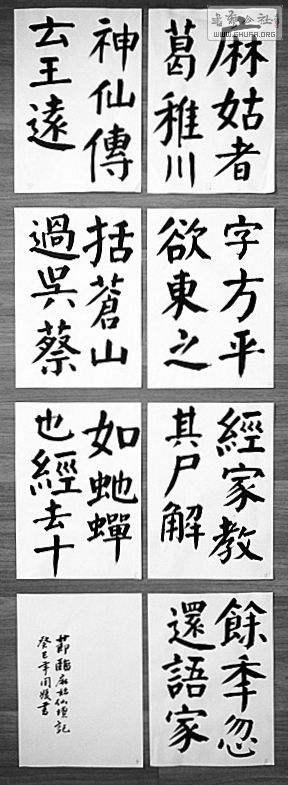 書法公社
WWW.SHUFA.ORG
麻姑者
葛稚川
神仙傳
云王遠
字方平
欲東之
括蒼山
過吳蔡
經家教
其尸解
如虵蟬
也經去十
餘秊忽
還語家
節臨麻姑仙壇記
癸巳年周媛書